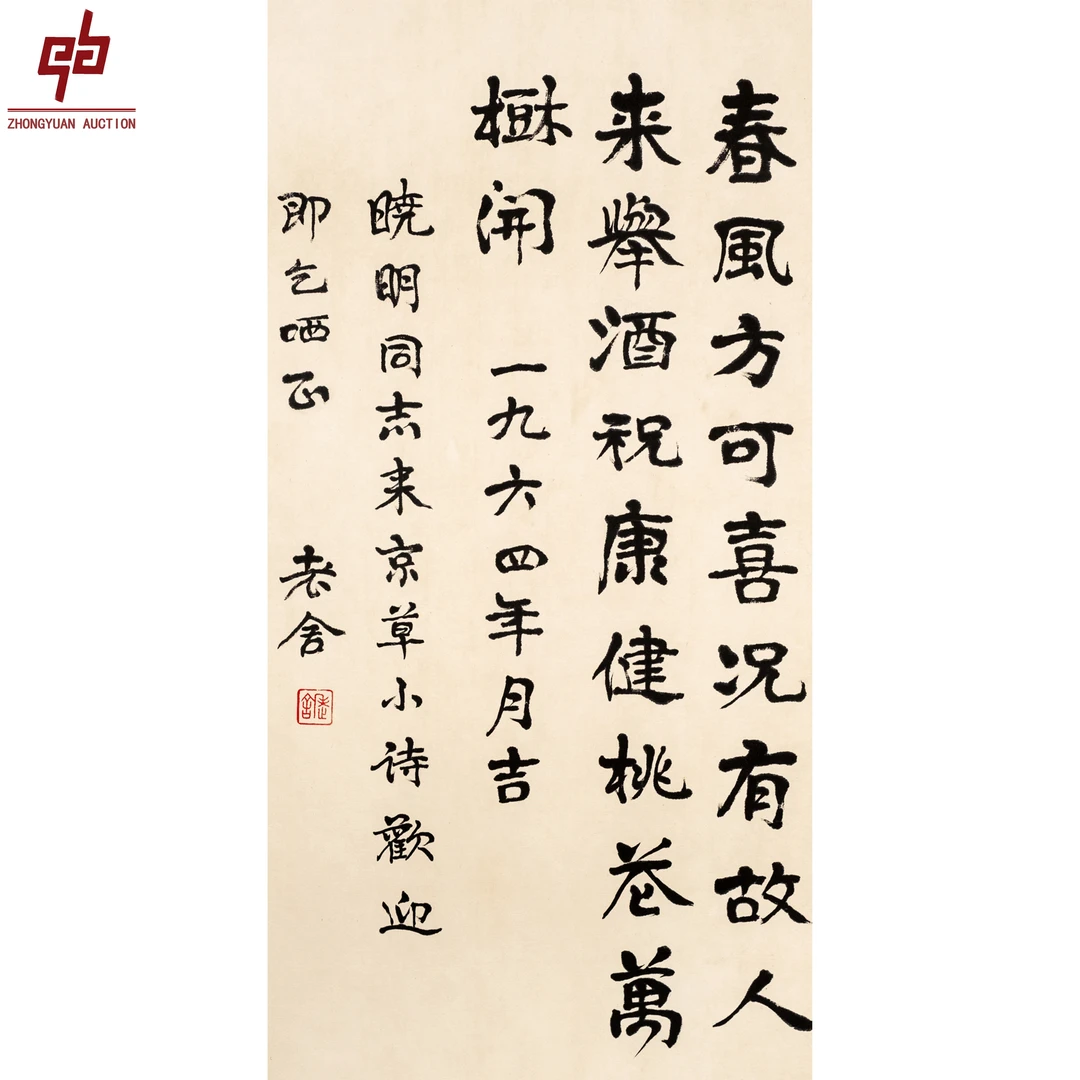 ZHONGYUAN AUCTION
春風方可喜况有故人
来舉酒祝康健桃花萬
樹開 一九六四年月吉
晓明同志来京草小诗歡迎
即乞哂正 老舍
老舍